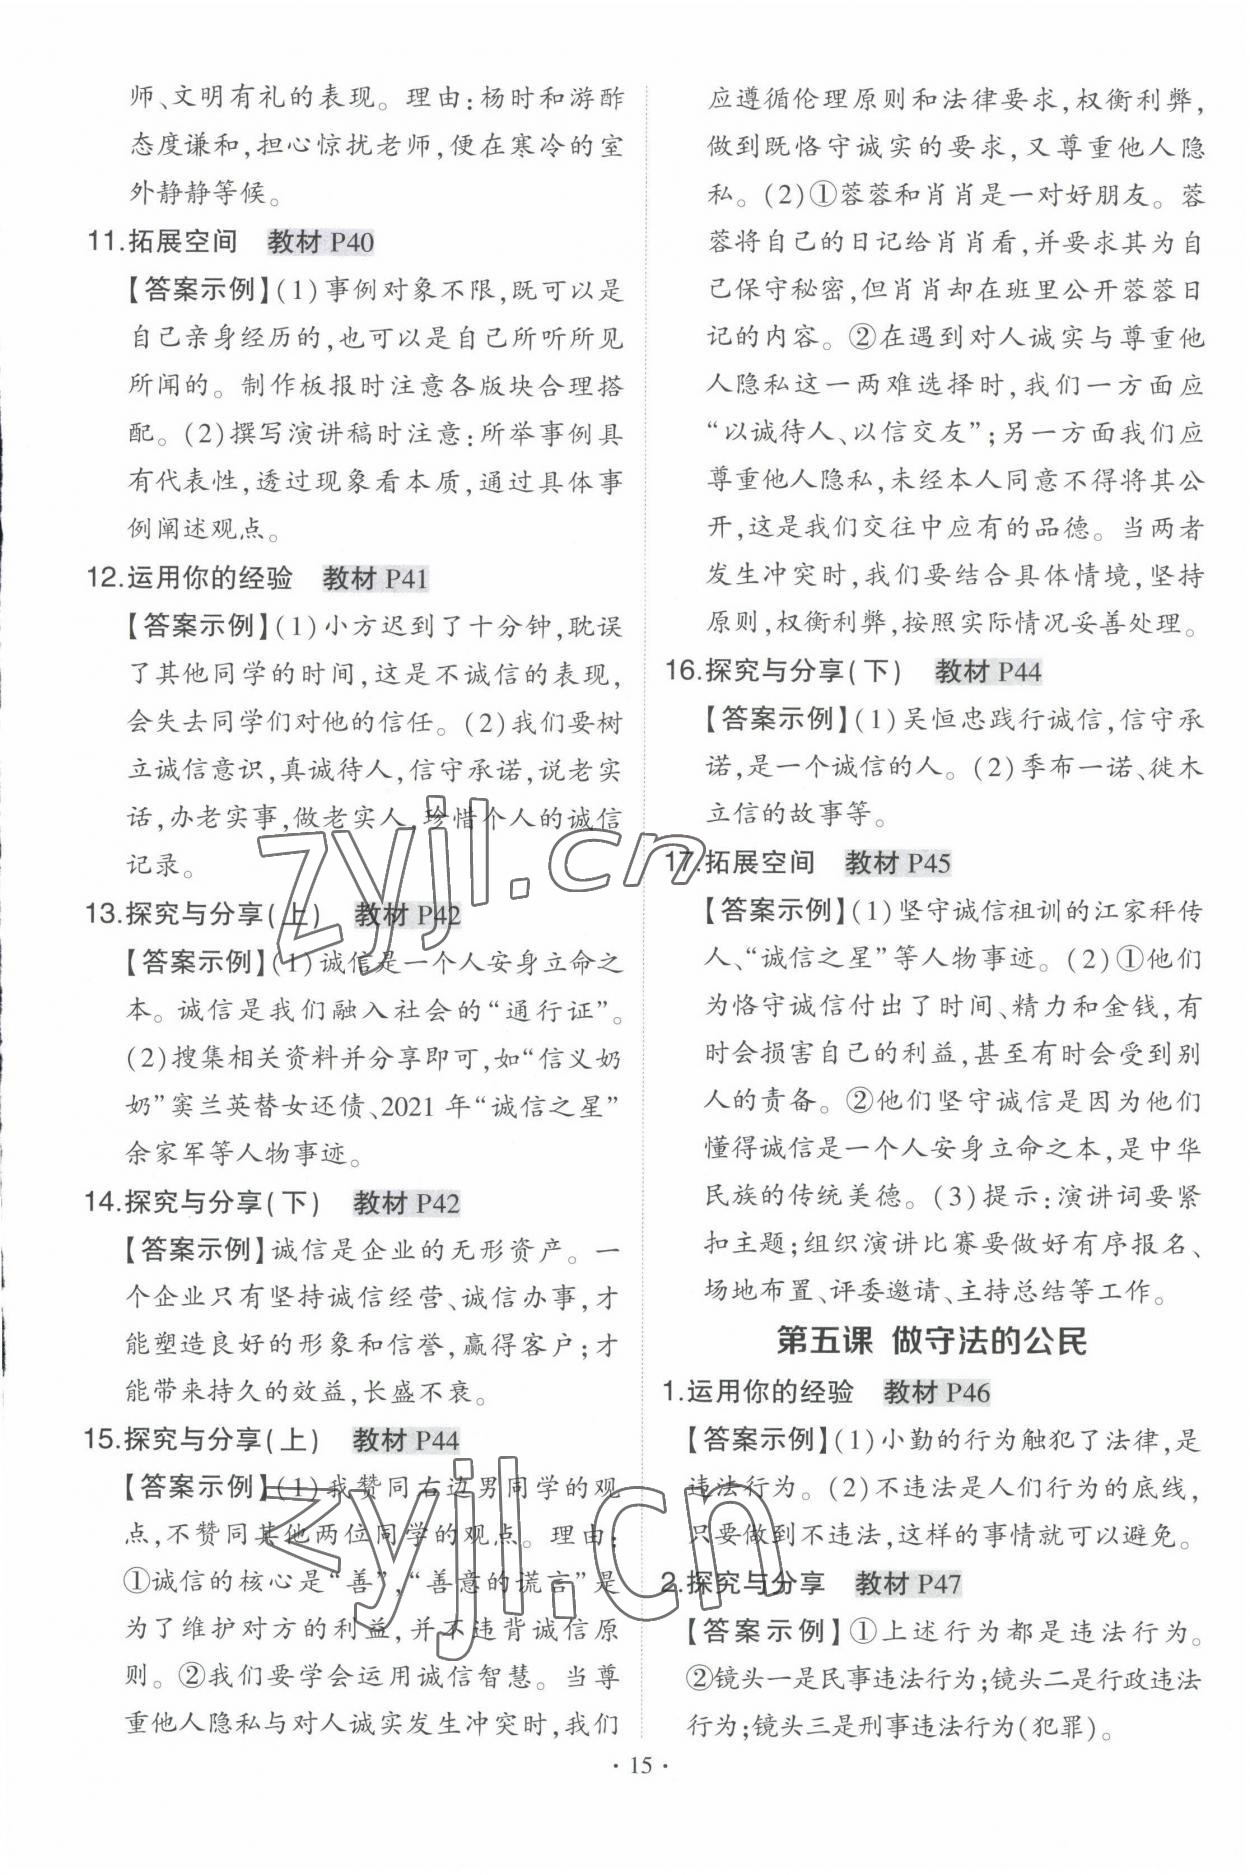 师、文明有礼的表现。理由:杨时和游酢
态度谦和,担心惊扰老师,便在寒冷的室
外静静等候。
11.拓展空间 教材 P40
【答案示例】(1)事例对象不限,既可以是
自己亲身经历的,也可以是自己所听所见
所闻的。制作板报时注意各版块合理搭
配。(2)撰写演讲稿时注意:所举事例具
有代表性,透过现象看本质,通过具体事
例阐述观点。
12.运用你的经验 教材 P41
【答案示例】(1)小方迟到了十分钟,耽误
了其他同学的时间,这是不诚信的表现,
会失去同学们对他的信任。(2)我们要树
立诚信意识,真诚待人,信守承诺,说老实
话,办老实事,做老实人,珍惜个人的诚信
记录。
13.探究与分享(上) 教材 P42
【答案示例】(1)诚信是一个人安身立命之
本。诚信是我们融入社会的“通行证”。
(2)搜集相关资料并分享即可,如“信义奶
奶”窦兰英替女还债、2021 年“诚信之星”
余家军等人物事迹。
14.探究与分享(下) 教材 P42
【答案示例】诚信是企业的无形资产。一
个企业只有坚持诚信经营、诚信办事,才
能塑造良好的形象和信誉,赢得客户;才
能带来持久的效益,长盛不衰。
15.探究与分享(上) 教材 P44
【答案示例】(1)我赞同右边男同学的观
点,不赞同其他两位同学的观点。理由:
①诚信的核心是“善”,“善意的谎言”是
为了维护对方的利益,并不违背诚信原
则。②我们要学会运用诚信智慧。当尊
重他人隐私与对人诚实发生冲突时,我们
应遵循伦理原则和法律要求,权衡利弊,
做到既恪守诚实的要求,又尊重他人隐
私。(2)①蓉蓉和肖肖是一对好朋友。蓉
蓉将自己的日记给肖肖看,并要求其为自
己保守秘密,但肖肖却在班里公开蓉蓉日
记的内容。②在遇到对人诚实与尊重他
人隐私这一两难选择时,我们一方面应
“以诚待人、以信交友”;另一方面我们应
尊重他人隐私,未经本人同意不得将其公
开,这是我们交往中应有的品德。当两者
发生冲突时,我们要结合具体情境,坚持
原则,权衡利弊,按照实际情况妥善处理。
16.探究与分享(下) 教材 P44
【答案示例】(1)吴恒忠践行诚信,信守承
诺,是一个诚信的人。(2)季布一诺、徙木
立信的故事等。
17.拓展空间 教材 P45
【答案示例】(1)坚守诚信祖训的江家秤传
人、“诚信之星”等人物事迹。(2)①他们
为恪守诚信付出了时间、精力和金钱,有
时会损害自己的利益,甚至有时会受到别
人的责备。②他们坚守诚信是因为他们
懂得诚信是一个人安身立命之本,是中华
民族的传统美德。(3)提示:演讲词要紧
扣主题;组织演讲比赛要做好有序报名、
场地布置、评委邀请、主持总结等工作。
第五课 做守法的公民
1.运用你的经验 教材 P46
【答案示例】(1)小勤的行为触犯了法律,是
违法行为。(2)不违法是人们行为的底线,
只要做到不违法,这样的事情就可以避免。
2.探究与分享 教材 P47
【答案示例】①上述行为都是违法行为。
②镜头一是民事违法行为;镜头二是行政违法
行为;镜头三是刑事违法行为(犯罪)。
· 15 ·
zyjl.cn
zyjl.cn